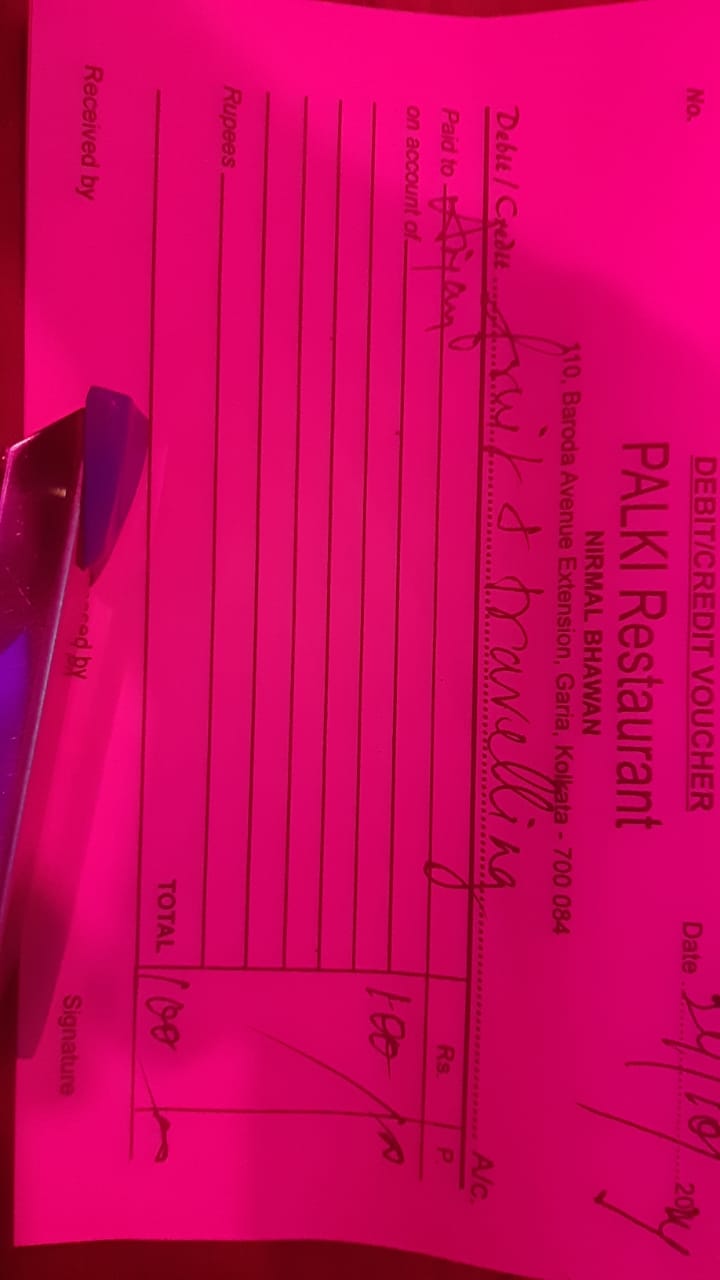 DEBIT/CREDIT VOUCHER
No.
Date 24/10/2024
PALKI Restaurant
NIRMAL BHAWAN
110, Baroda Avenue Extension, Garia, Kolkata - 700 084
Debit / Credit fruit & travelling A/c.
Paid to Rs. P
on account of 100
Rupees
TOTAL 100
Received by Signature